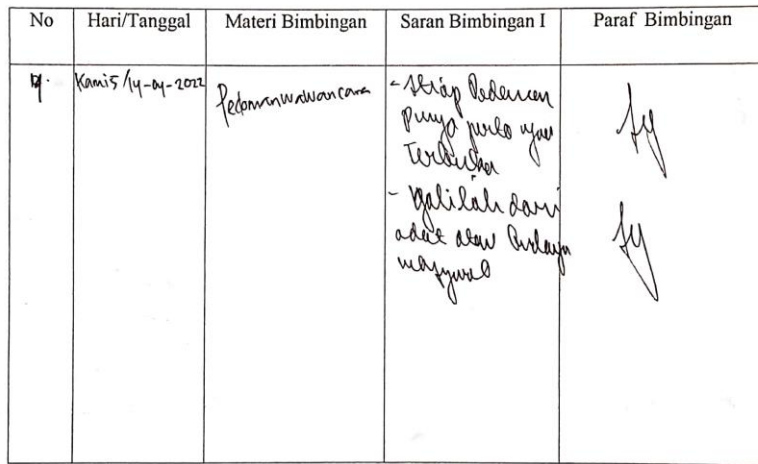 No Hari/Tanggal Materi Bimbingan Saran Bimbingan I Paraf Bimbingan
Kamis/14-04-2022
Pedoman wawancara
- Setiap Pedoman
punya
Terbuka
- galilah dari
adat atau Budaya